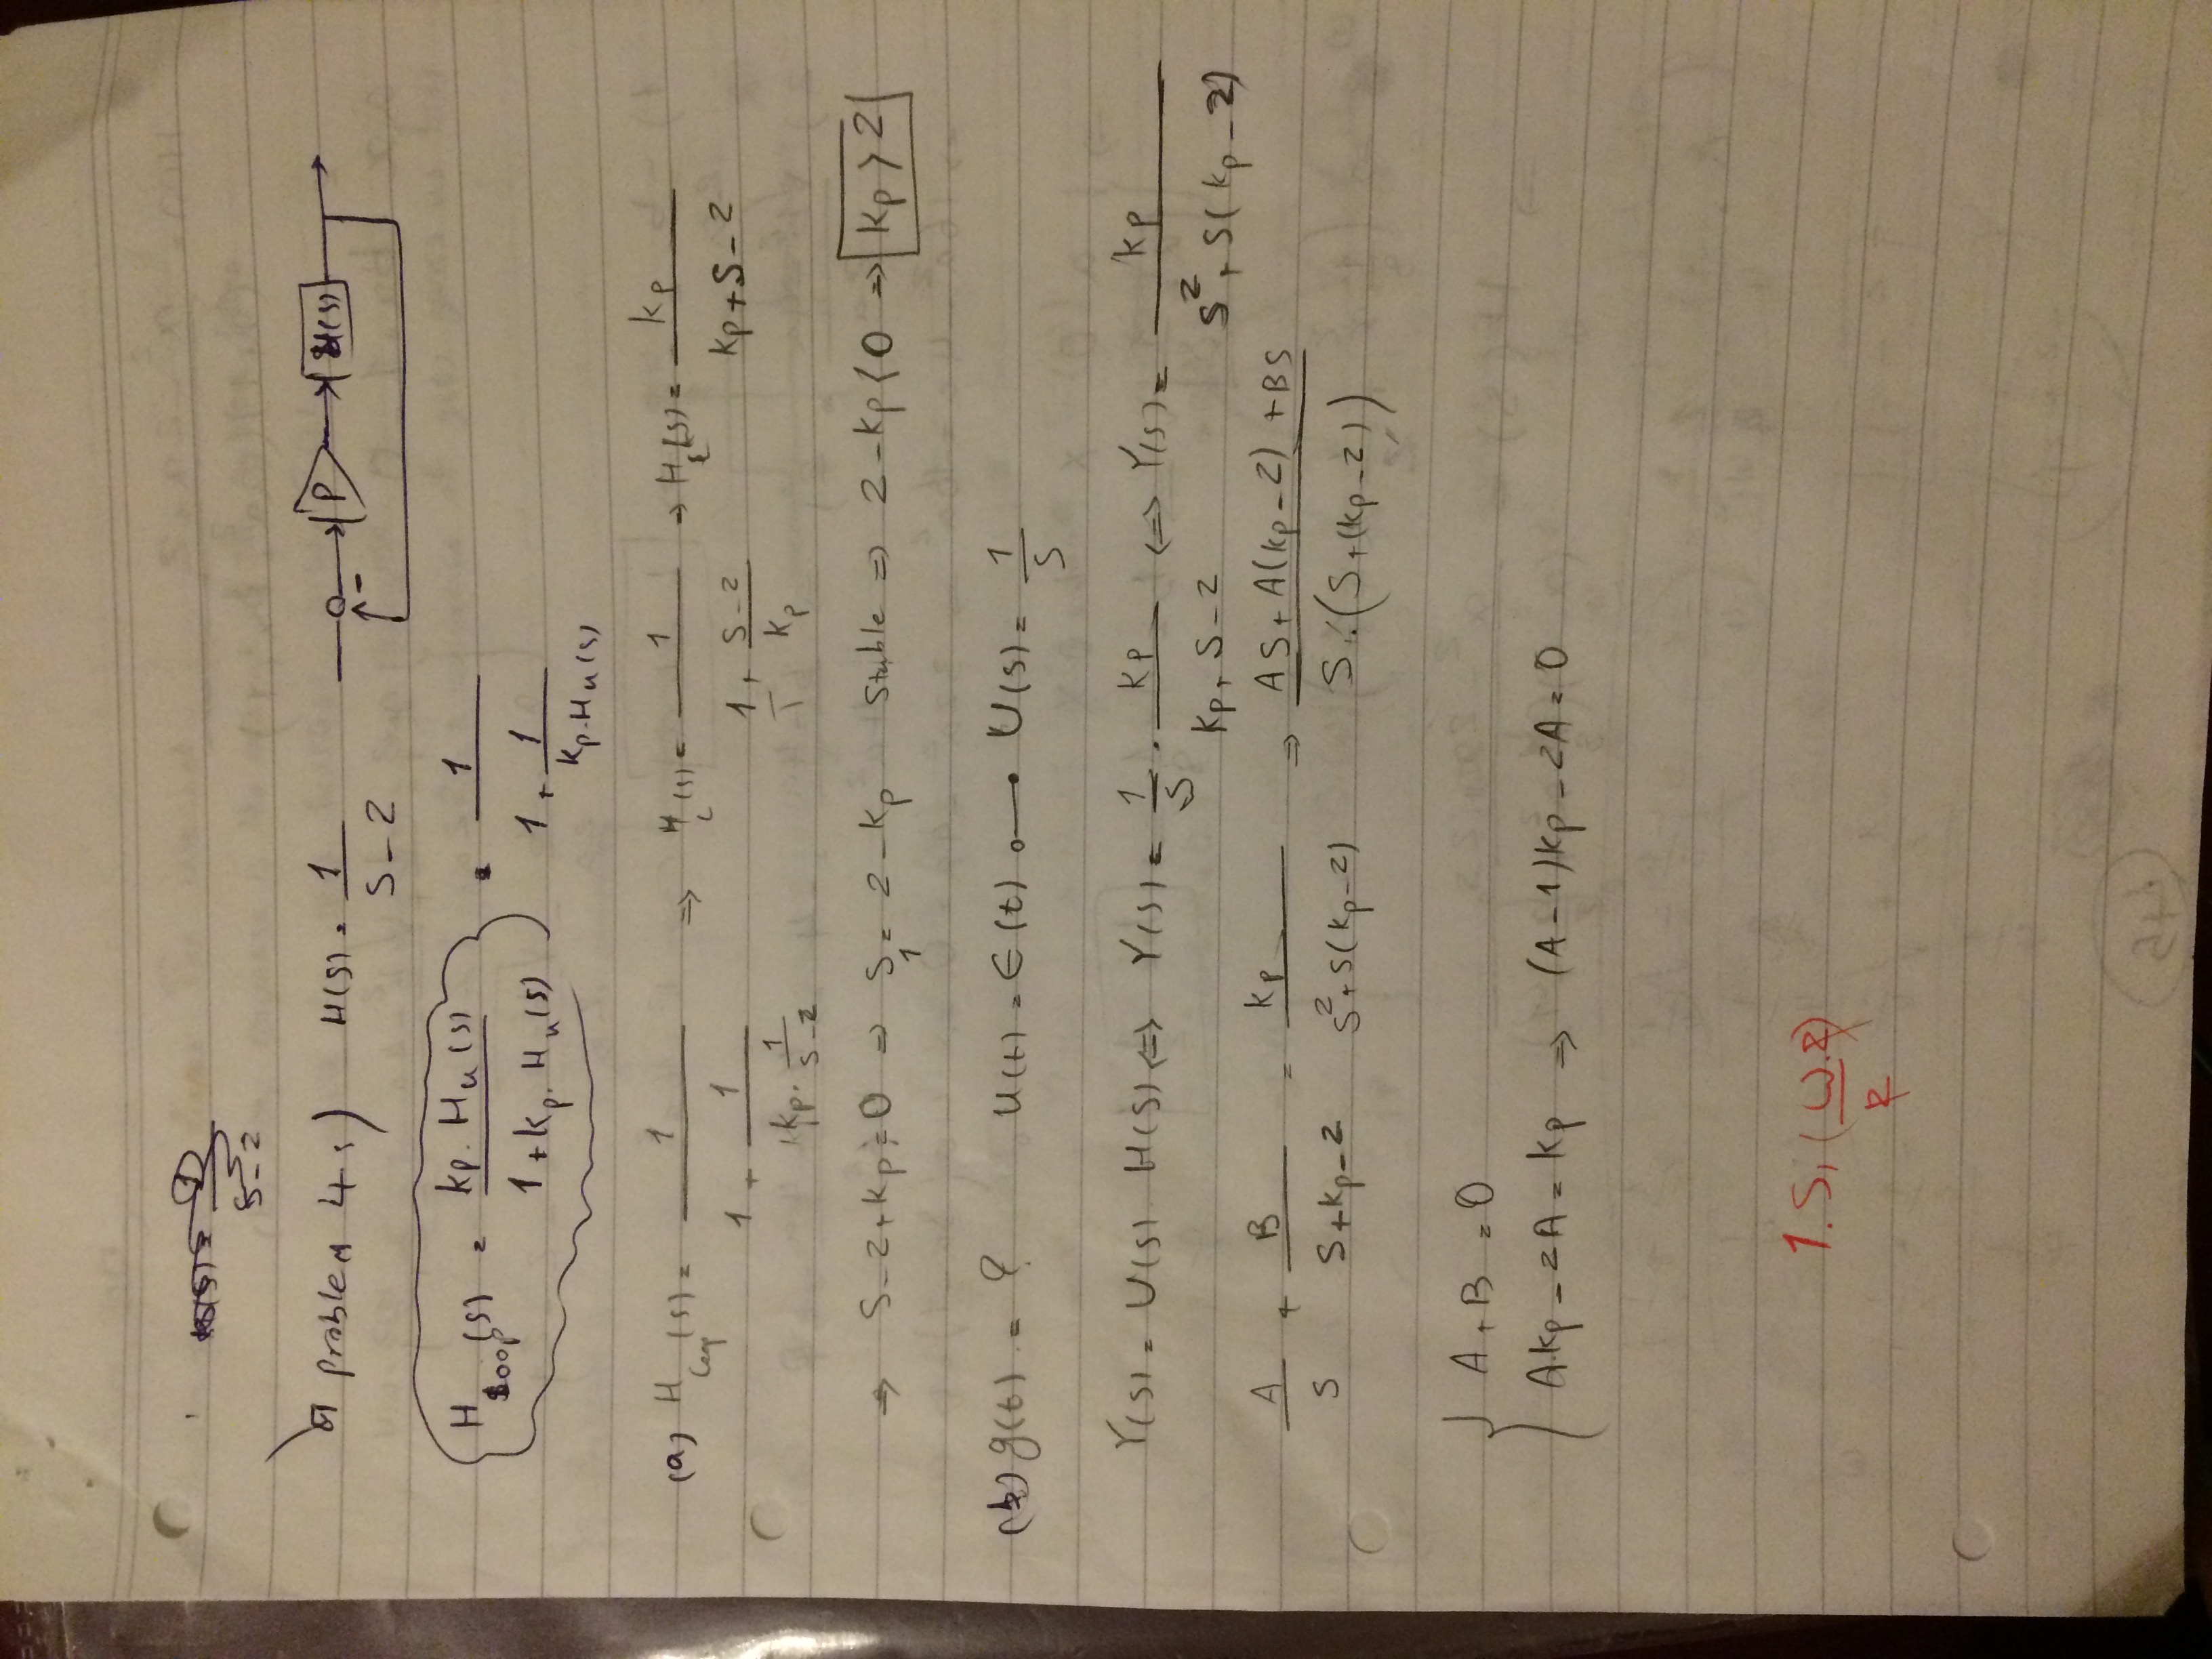 problem 4:) H(s) = 1/(S-2) P H(s)
H_Loop(s) = kp.Hu(s)/(1+kp.Hu(s)) = 1/(1+1/(kp.Hu(s)))
(a) H_Loop(s) = 1/(1+1/(kp.1/(S-2))) ⇒ H_L(s) = 1/(1+(S-2)/kp) → H_L(s) = kp/(kp+S-2)
⇒ S-2+kp=0 ⇒ S_1 = 2-kp Stable ⇒ 2-kp<0 ⇒ kp>2
(b) g(t) = ? U(t) = ε(t) o—• U(s) = 1/S
Y(s) = U(s) H(s) ⇔ Y(s) = 1/S . kp/(kp+S-2) ⇔ Y(s) = kp/(S²+S(kp-2))
A/S + B/(S+kp-2) = kp/(S²+S(kp-2)) ⇒ (AS+A(kp-2)+BS)/(S.(S+(kp-2)))
A+B=0
A.kp-2A=kp ⇒ (A-1)kp-2A=0